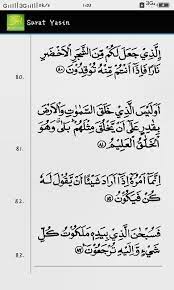 1:03
3G
Surat Yasin
الَّذِي جَعَلَ لَكُمْ مِنَ الشَّجَرِ الْأَخْضَرِ
نَارًا فَإِذَا أَنْتُمْ مِنْهُ تُوقِدُونَ ﴿٨٠﴾
80.
أَوَلَيْسَ الَّذِي خَلَقَ السَّمٰوٰتِ وَالْأَرْضَ
بِقٰدِرٍ عَلٰى أَنْ يَخْلُقَ مِثْلَهُمْ بَلٰى وَهُوَ
الْخَلّٰقُ الْعَلِيمُ ﴿٨١﴾
81.
إِنَّمَا أَمْرُهُ إِذَا أَرَادَ شَيْئًا أَنْ يَقُولَ لَهُ
كُنْ فَيَكُونُ ﴿٨٢﴾
82.
فَسُبْحٰنَ الَّذِي بِيَدِهِ مَلَكُوتُ كُلِّ
شَيْءٍ وَإِلَيْهِ تُرْجَعُونَ ﴿٨٣﴾